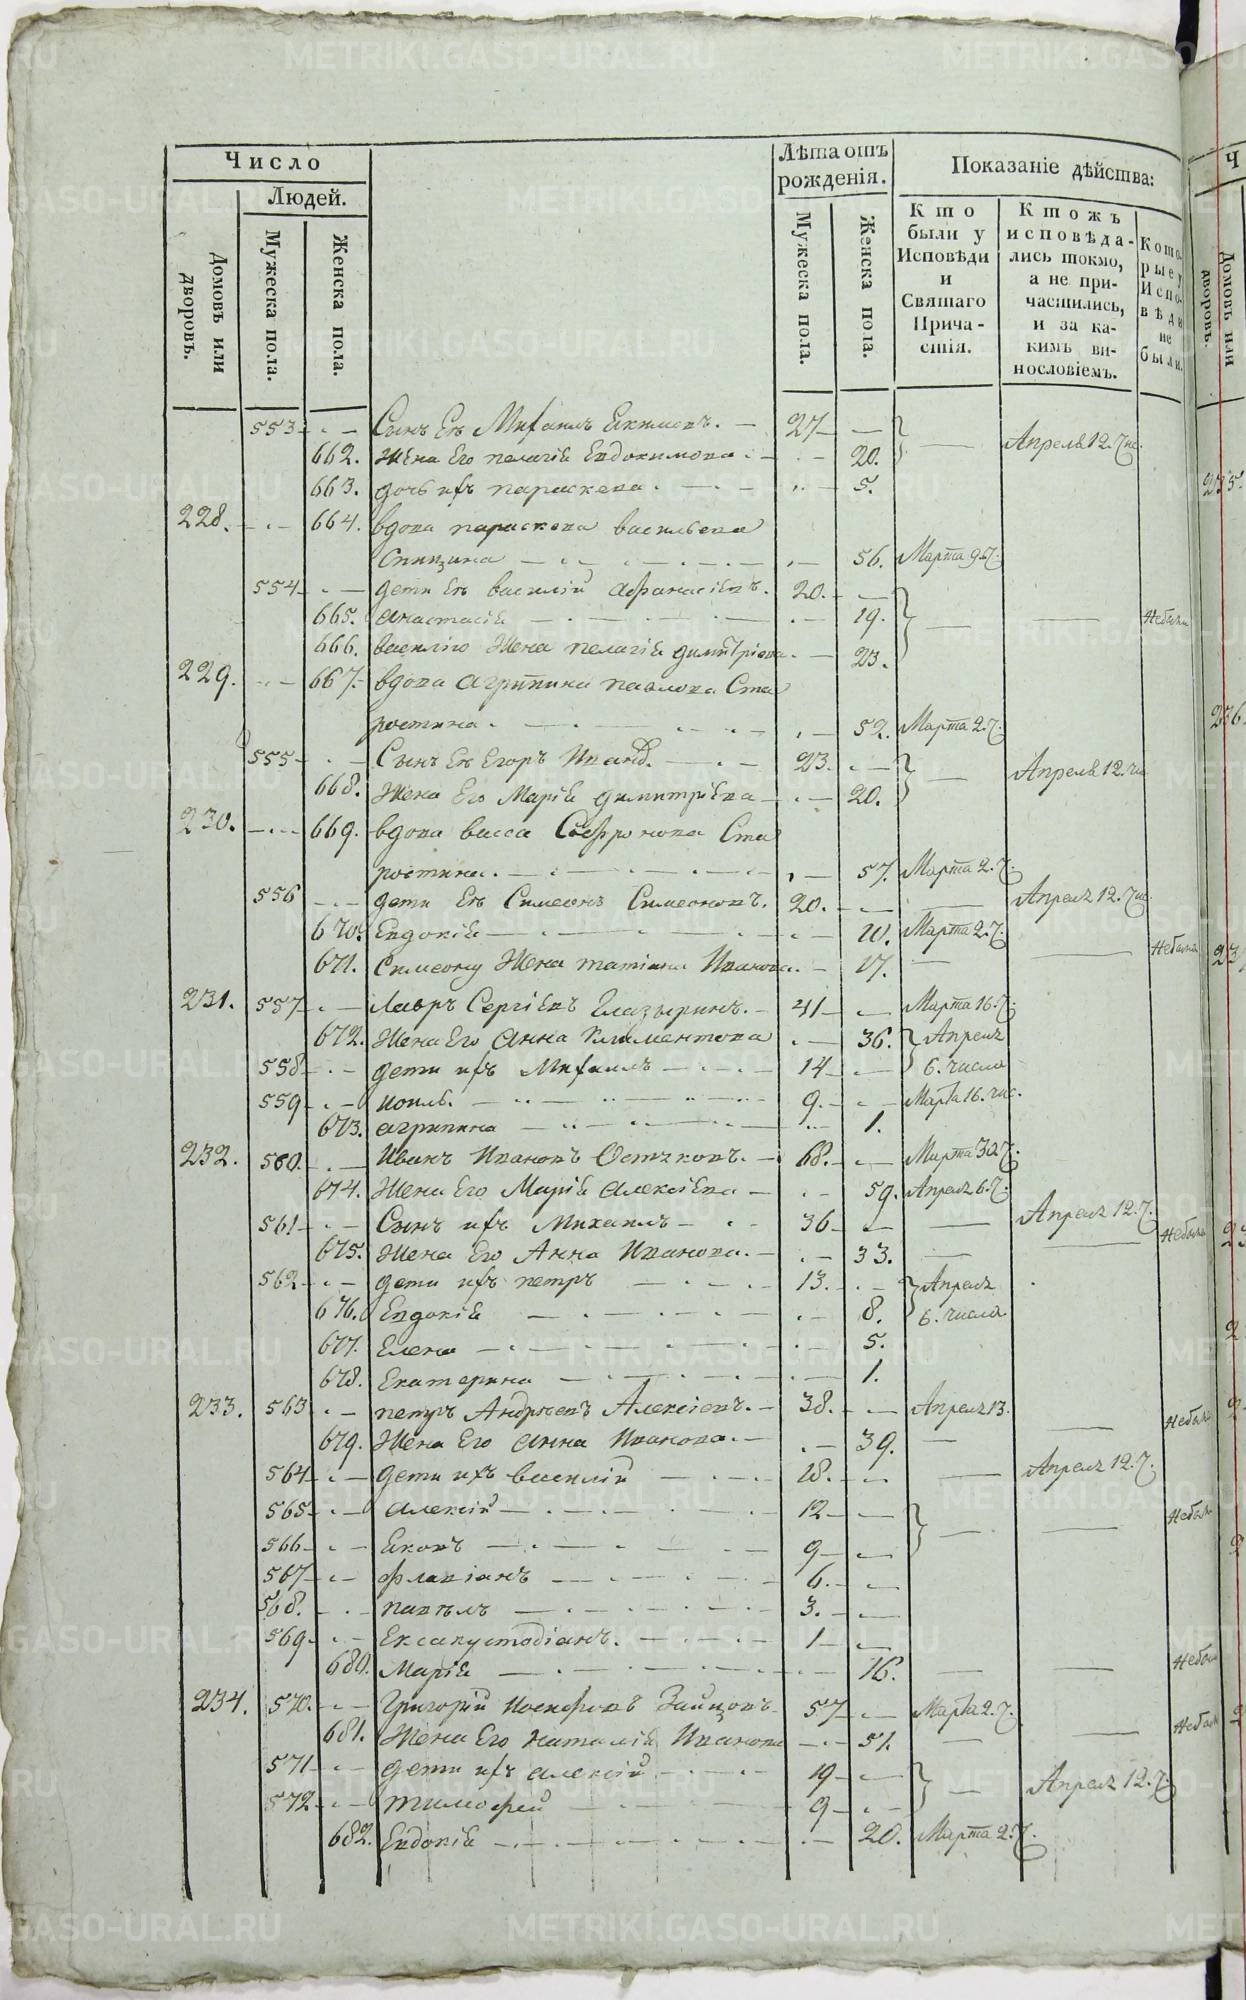 Число
Людей.
Домовъ или дворовъ.
Мужеска пола.
Женска пола.
Лѣта отъ рожденія.
Мужеска пола.
Женска пола.
Показаніе дѣйства:
Кто были у Исповѣди и Святаго Причастія.
Ктожъ исповѣдались токмо, а не причастились, и за какимъ винословіемъ.
Которые у Исповѣди не были.
553 Сынъ Ея Михаилъ 27
Апреля 12. ч.
662. Жена Его пелагія Евдокимова 20.
663. дочь ихъ параскева 5.
228. 664. вдова параскева васильева
Спицина 56. Марта 9. ч.
554 дети Ея василій Афанасіевъ. 20.
665. анастасія 19. Небыли
666. василію Жена пелагія димитріева 23.
229. 667. вдова агрипина павлова Ста
ростина. 52. Марта 2. ч.
555 Сынъ Ея Егоръ Иванов. 23. Апреля 12. чи
668. Жена Его Марія димитріева 20.
230. 669. вдова васса Софронова Ста
ростина. 57. Марта 2. ч.
556 дети Ея Симеонъ Симеоновъ. 20. Апреля 12. чис.
670. Евдокія 10. Марта 2. ч.
671. Симеону Жена татіана Иванова. 17. Небыла
231. 557 Лавръ Сергіевъ Глазыринъ. 41 Марта 16. ч.
672. Жена Его Анна Климентова 36. Апреля
558 дети ихъ Михаилъ 14 6. числа
559 9. Марта 16. чис.
673. агрипина 1.
232. 560. Иванъ Ивановъ 68. Марта 30. ч.
674. Жена Его Марія Алексіева 59. Апреля 6. ч.
561 Сынъ ихъ Михаилъ 36 Апреля 12. ч.
675. Жена Его Анна Иванова. 33. Небыла
562 дети ихъ петръ 13. Апреля
676. Евдокія 8. 6. числа
677. Елена 5.
678. Екатерина 1.
233. 563 петръ Андреевъ Алексіевъ. 38. Апреля 13.
679. Жена Его анна Иванова. 39. Небыла
564 дети ихъ василій 18. Апреля 12. ч.
565 алексій 12 Небыли
566 Яковъ 9
567 флавіанъ 6.
568. павелъ 3.
569. Ексакустодіанъ. 1
680. Марія 16. Небыла
234. 570. Григорій Иосифовъ Зайцовъ 57 Марта 2. ч.
681. Жена Его наталія Иванова 51. Небыла
571 дети ихъ алексій 19 Апреля 12. ч.
572 тимофей 9
682. Евдокія 20. Марта 2. ч.
Ч
Домовъ или дворовъ.
METRIKI.GASO-URAL.RU